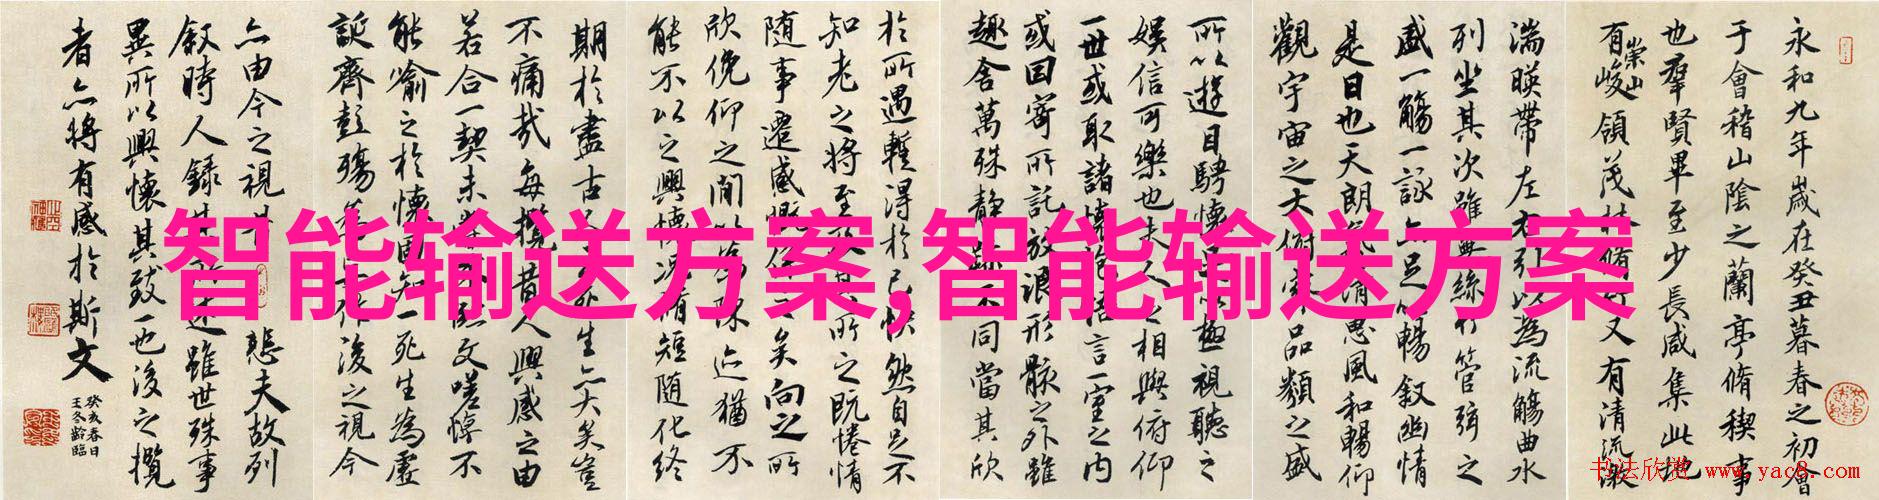 永和九年歲在癸丑暮春之初會
于會稽山陰之蘭亭脩稧事
也羣賢畢至少長咸集此地
有崇山峻領茂林脩竹又有清流激
湍暎帶左右引以為流觴曲水
列坐其次雖無絲竹管弦之
盛一觴一詠亦足以暢敘幽情
是日也天朗氣清惠風和暢仰
觀宇宙之大俯察品類之盛
所以遊目騁懷足以極視聽之
娛信可樂也夫人之相與俯仰
一世或取諸懷抱悟言一室之内
或因寄所託放浪形骸之外雖
趣舍萬殊静躁不同當其欣
於所遇暫得於己怏然自足不
知老之將至及其所之既惓情
随事遷感慨係之矣向之所
欣俛仰之間以為陳迹猶不
能不以之興懷況脩短随化終
期於盡古人云死生亦大矣豈
不痛哉每攬昔人興感之由
若合一契未嘗不臨文嗟悼不
能喻之於懷固知一死生為虛
誕齊彭殤為妄作後之視今
亦由今之視昔悲夫故列
敘時人錄其所述雖世殊事
異所以興懷其致一也後之攬
者亦將有感於斯文
癸亥春日
王冬齡臨
智能输送方案,智能输送方案
书法欣赏 www.yac8.com